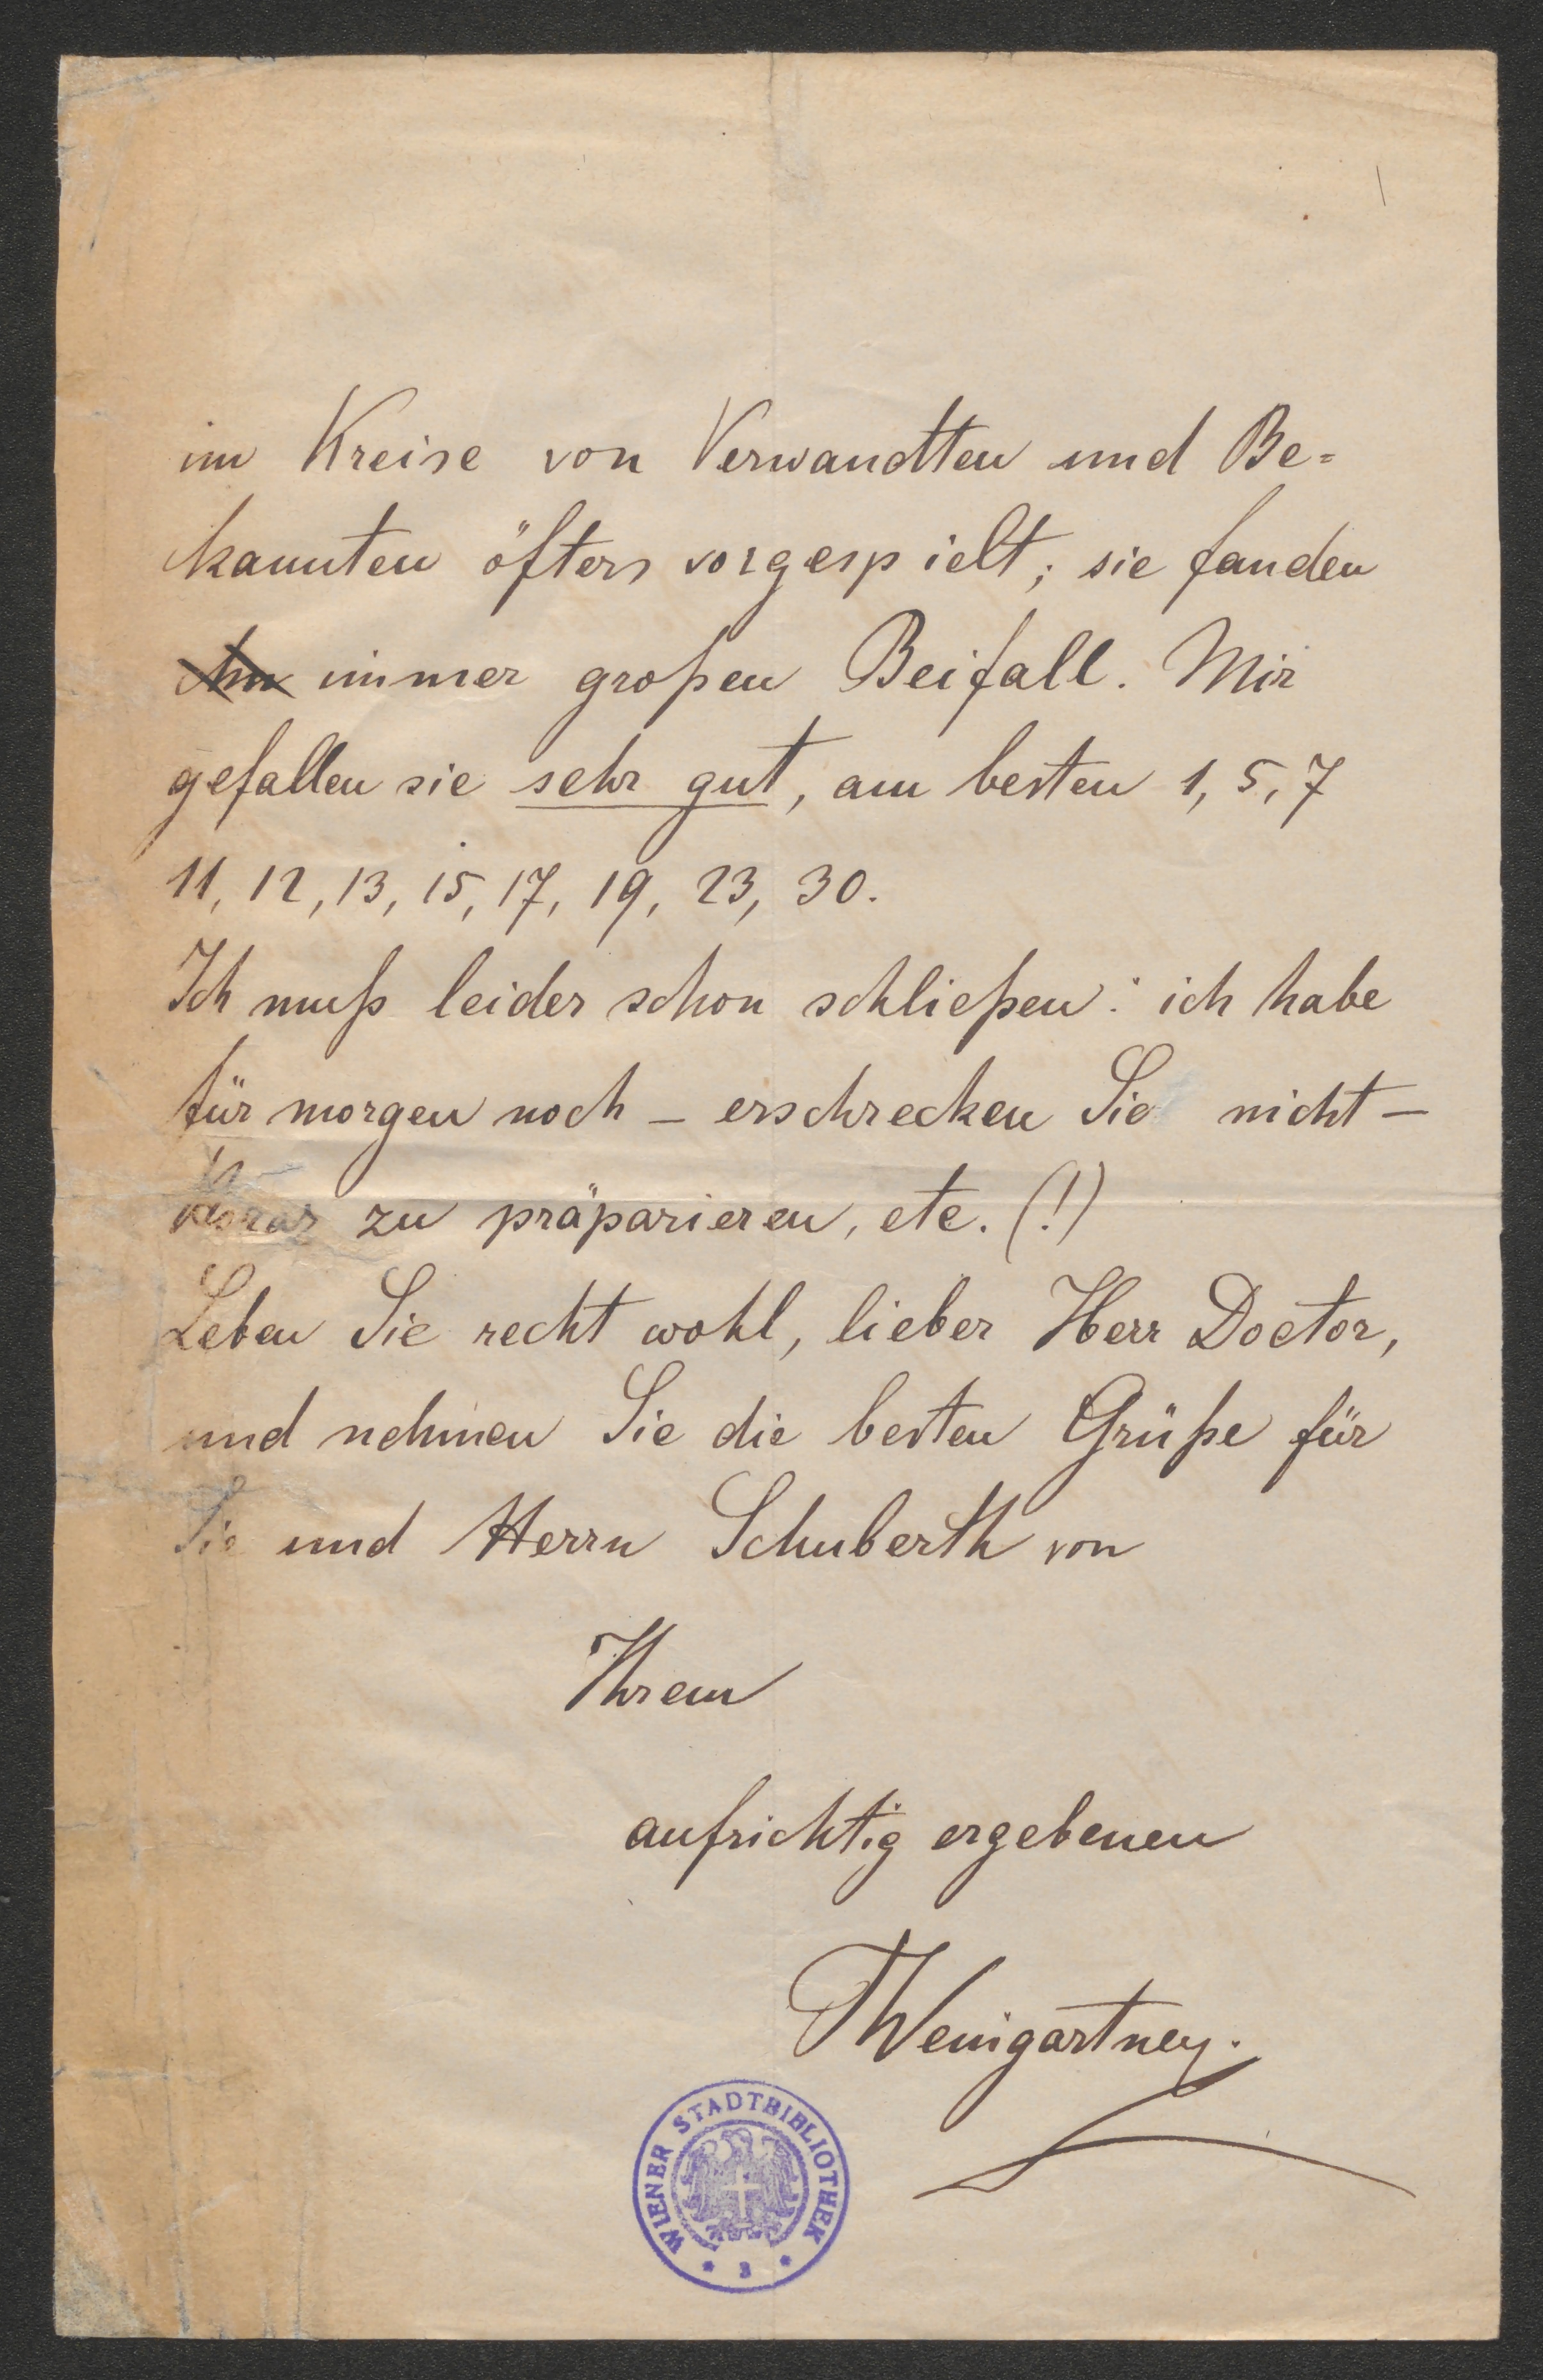 im Kreise von Verwandten und Be=
kannten öfters vorgespielt; sie fanden
immer großen Beifall. Mir
gefallen sie sehr gut, am besten 1, 5, 7
11, 12, 13, 15, 17, 19, 23, 30.
Ich muß leider schon schließen: ich habe
für morgen noch – erschrecken Sie nicht –
zu präparieren, etc. (!)
Leben Sie recht wohl, lieber Herr Doctor,
und nehmen Sie die besten Grüße für
Sie und Herrn Schuberth von
Ihrem
aufrichtig ergebenen
Weingartner.
WIENER STADTBIBLIOTHEK
* 3 *